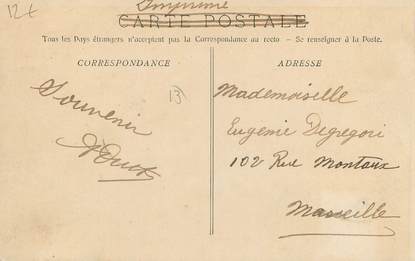 12€
Imprimé
CARTE POSTALE
Tous les Pays étrangers n'acceptent pas la Correspondance au recto — Se renseigner à la Poste.
CORRESPONDANCE
Souvenir
13
ADRESSE
Mademoiselle
Eugénie Degregori
102 Rue Montaux
Marseille